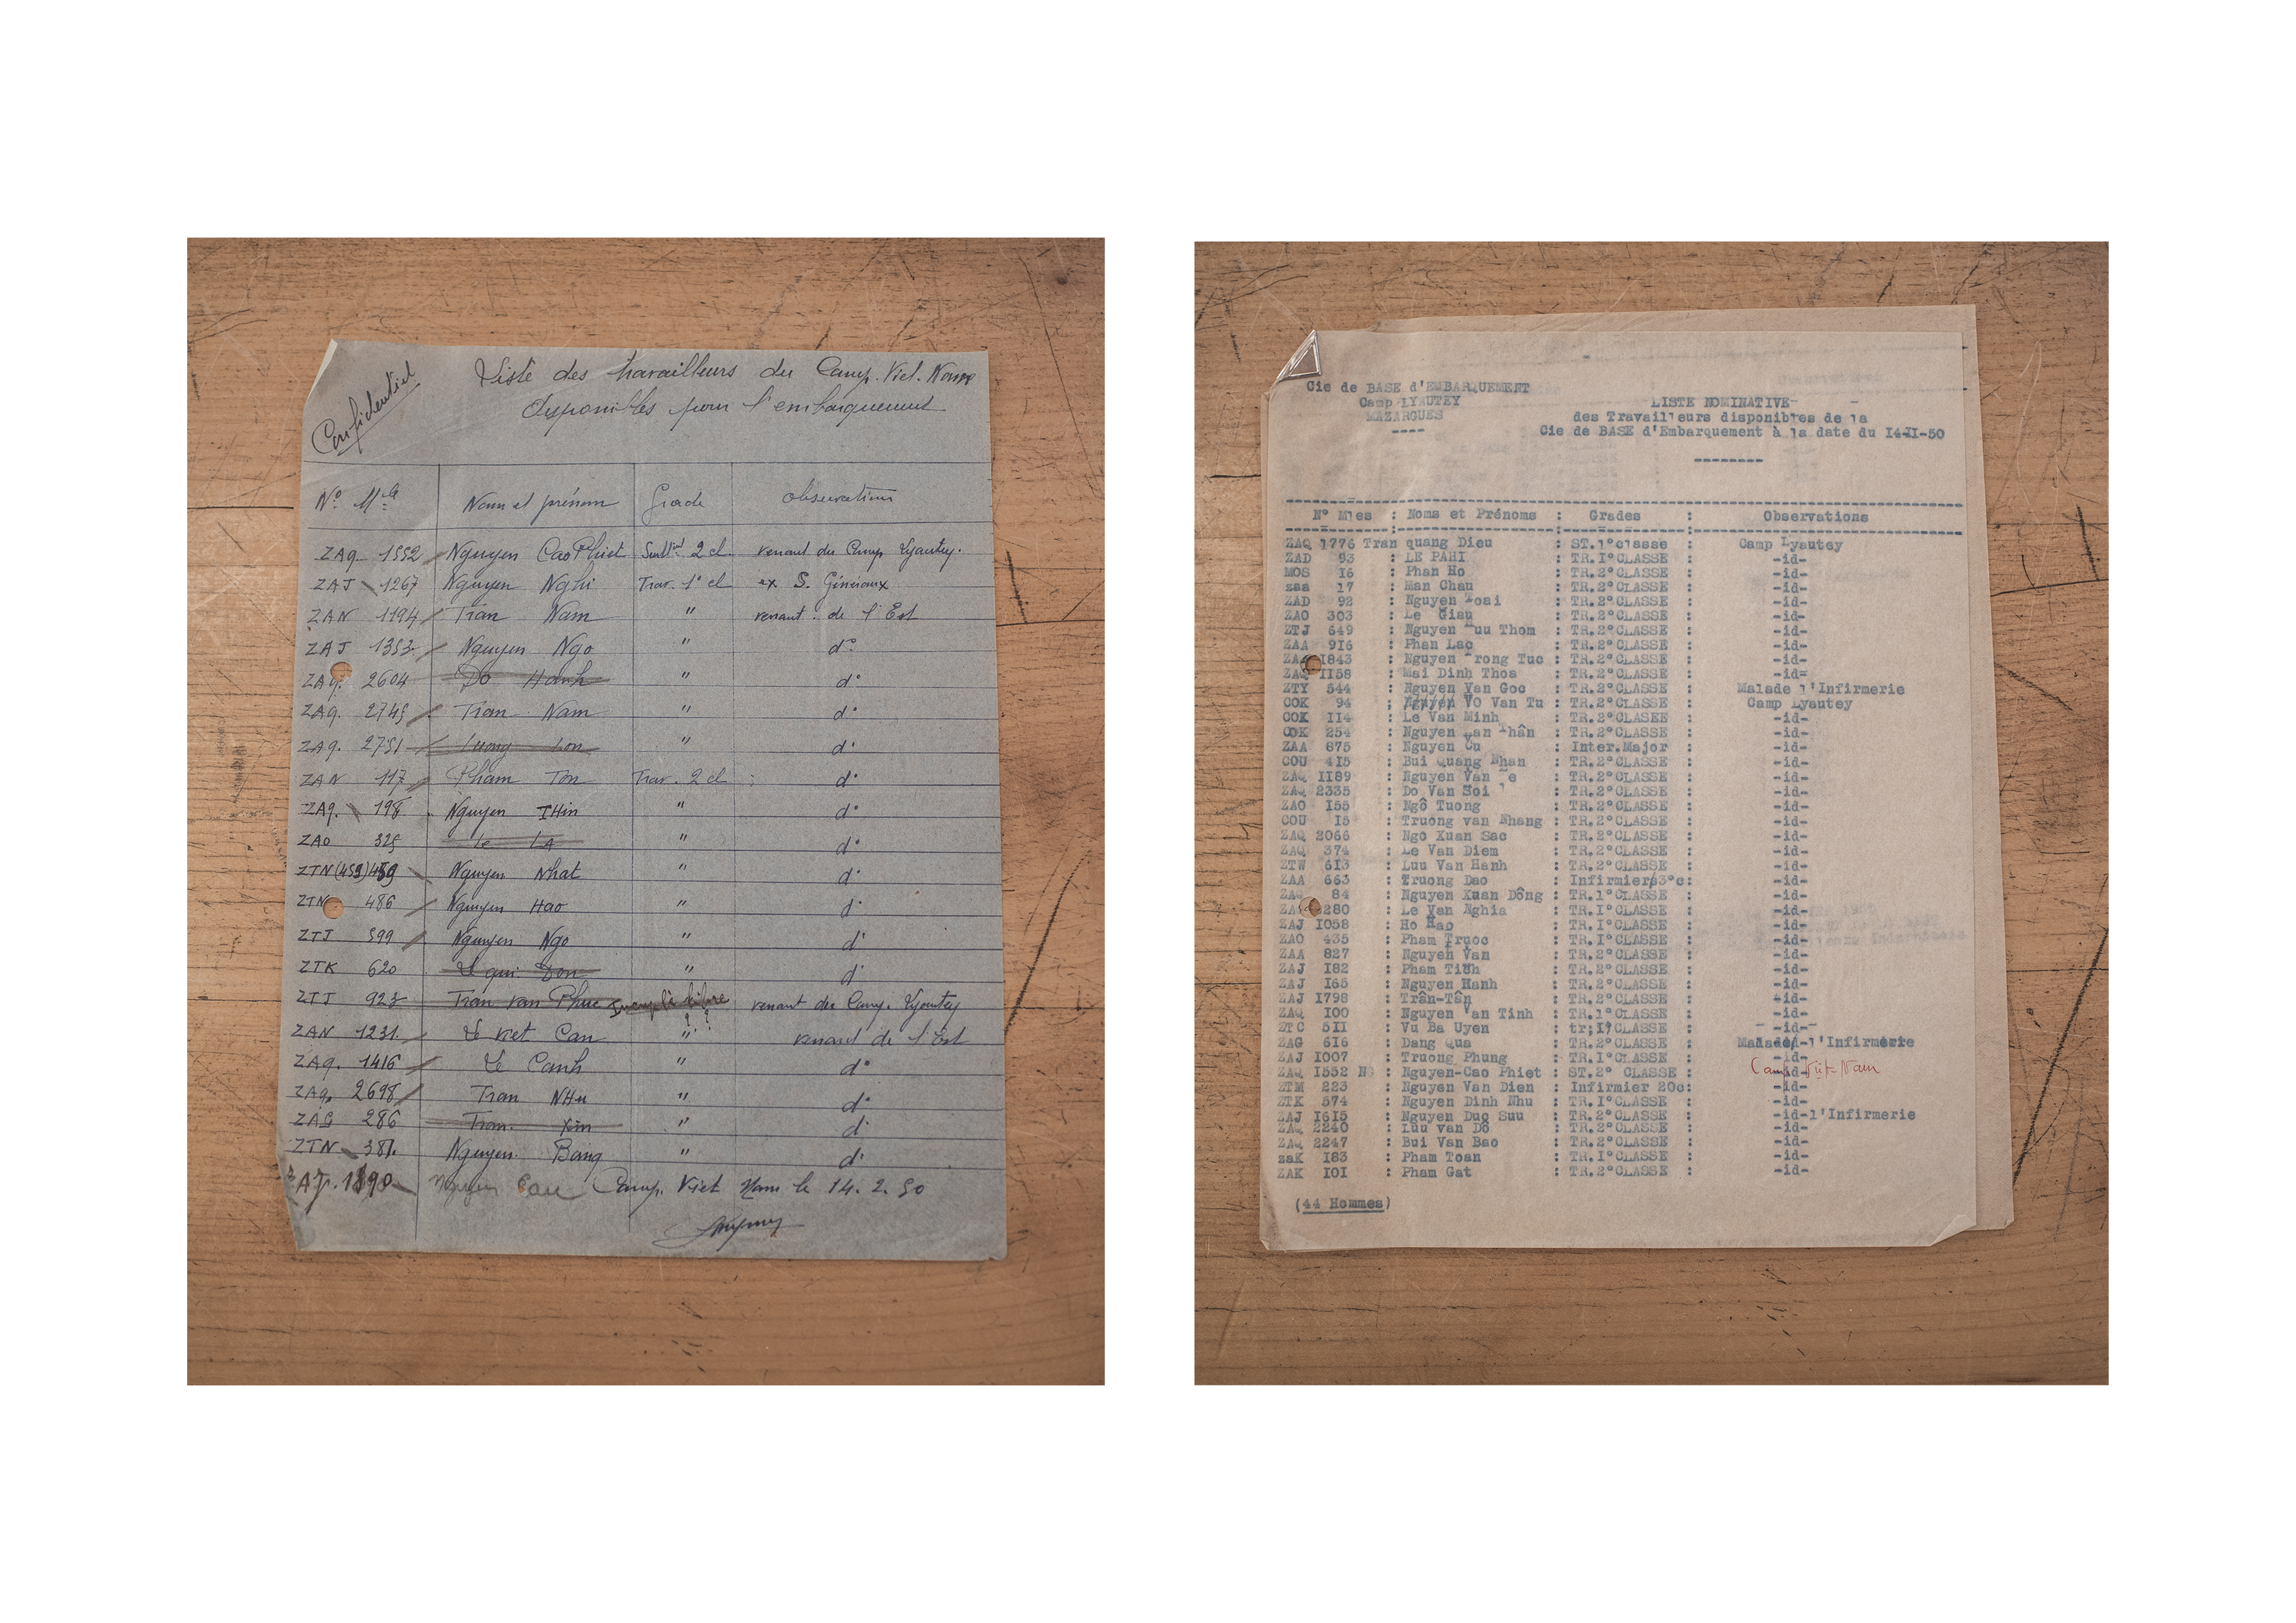 Confidentiel
Liste des travailleurs du Camp. Viet. Nam
disponibles pour l'embarquement
N° Mle Nom et prénom Grade Observations
ZAQ. 1552 Nguyen Cao Phiet 2 cl. venant du Camp Lyautey.
ZAJ 1267 Nguyen Nghi Trav. 1° cl ex S. Généraux
ZAN 1194 Tran Nam " venant de l'Est
ZAJ 1353 Nguyen Ngo " d°
ZAQ. 2604 Do Hanh " d°
ZAQ. 2745 Tran Nam " d°
ZAQ. 2751 Luong Lon " d°
ZAN 117 Pham Ton Trav. 2 cl d°
ZAQ. 198 Nguyen THin " d°
ZAO 325 Le LA " d°
ZTN (459) 459 Nguyen Nhat " d°
ZTN 486 Nguyen Hao " d°
ZTJ 599 Nguyen Ngo " d°
ZTK 620 Le qui Don " d°
ZTJ 923 Tran van Phuc venant du Camp. Lyautey
ZAN 1231 Le viet Can " venant de l'Est
ZAQ. 1416 Le Canh " d°
ZAQ. 2698 Tran NHu " d°
ZAG 286 Tran Xin " d°
ZTN 381. Nguyen Bang " d°
ZAJ. 1890 Nguyen Camp. Viet Nam le 14. 2. 50
Cie de BASE d'EMBARQUEMENT
Camp LYAUTEY
MAZARGUES
LISTE NOMINATIVE
des Travailleurs disponibles de la
Cie de BASE d'Embarquement à la date du I4-II-50
N° Mles : Noms et Prénoms : Grades : Observations
ZAQ 1776 Tran quang Dieu : ST.1°classe : Camp Lyautey
ZAD 93 : LE PAHI : TR.I°CLASSE : -id-
MOS I6 : Phan Ho : TR.2°CLASSE : -id-
zaa 17 : Man Chau : TR.2°CLASSE : -id-
ZAD 92 : Nguyen Loai : TR.2°CLASSE : -id-
ZAO 303 : Le Giau : TR.2°CLASSE : -id-
ZTJ 649 : Nguyen Huu Thom : TR.2°CLASSE : -id-
ZAA 9I6 : Phan Lac : TR.2°CLASSE : -id-
1843 : Nguyen Trong Tuc : TR.2°CLASSE : -id-
ZAQ II58 : Mai Dinh Thoa : TR.2°CLASSE : -id=
ZTY 544 : Nguyen Van Goc : TR.2°CLASSE : Malade l'Infirmerie
COK 94 : Nguyen VO Van Tu : TR.2°CLASSE : Camp Lyautey
COK II4 : Le Van Minh : TR.2°CLASEE : -id-
COK 254 : Nguyen Van Thân : TR.2°CLASSE : -id-
ZAA 875 : Nguyen Cu : Inter.Major : -id-
COU 4I5 : Bui Quang Nhan : TR.2°CLASSE : -id-
ZAQ II89 : Nguyen Van e : TR.2°CLASSE : -id-
ZAQ 2335 : Do Van Soi : TR.2°CLASSE : -id-
ZAO I55 : Ngô Tuong : TR.2°CLASSE : -id-
COU I5 : Truong van Nhang : TR.2°CLASSE : -id-
ZAQ 2066 : Ngo Xuan Sac : TR.2°CLASSE : -id-
ZAQ 374 : Le Van Diem : TR.2°CLASSE : -id-
ZTW 6I3 : Luu Van Hanh : TR.2°CLASSE : -id-
ZAA 663 : Truong Dao : Infirmier/3°c: -id-
ZAQ 84 : Nguyen Xuan Dông : TR.1°CLASSE : -id-
280 : Le Van Nghia : TR.I°CLASSE : -id-
ZAJ I058 : Ho Hao : TR.I°CLASSE : -id-
ZAO 435 : Pham Truoc : TR.I°CLASSE : -id-
ZAA 827 : Nguyen Van : TR.2°CLASSE : -id-
ZAJ I82 : Pham Tinh : TR.2°CLASSE : -id-
ZAJ I65 : Nguyen Hanh : TR.2°CLASSE : -id-
ZAJ I798 : Trân-Tân : TR.2°CLASSE : -id-
ZAQ I00 : Nguyen Van Tinh : TR.1°CLASSE : -id-
ZTC 5II : Vu Ba Uyen : tr;I°CLASSE : -id-
ZAG 6I6 : Dang Qua : TR.2°CLASSE : Malade/-l'Infirmerie
ZAJ I007 : Truong Phung : TR.I°CLASSE : -id-
ZAQ I552 NG : Nguyen-Cao Phiet : ST.2° CLASSE : -id- Camp Viet-Nam
ZTM 223 : Nguyen Van Dien : Infirmier 20c: -id-
ZTK 574 : Nguyen Dinh Nhu : TR.I°CLASSE : -id-
ZAJ I6I5 : Nguyen Duc Suu : TR.2°CLASSE : -id-l'Infirmerie
ZAQ 2240 : Luu van Dô : TR.2°CLASSE : -id-
ZAQ 2247 : Bui Van Bao : TR.2°CLASSE : -id-
zaK I83 : Pham Toan : TR.I°CLASSE : -id-
ZAK I0I : Pham Gat : TR.2°CLASSE : -id-
(44 Hommes)